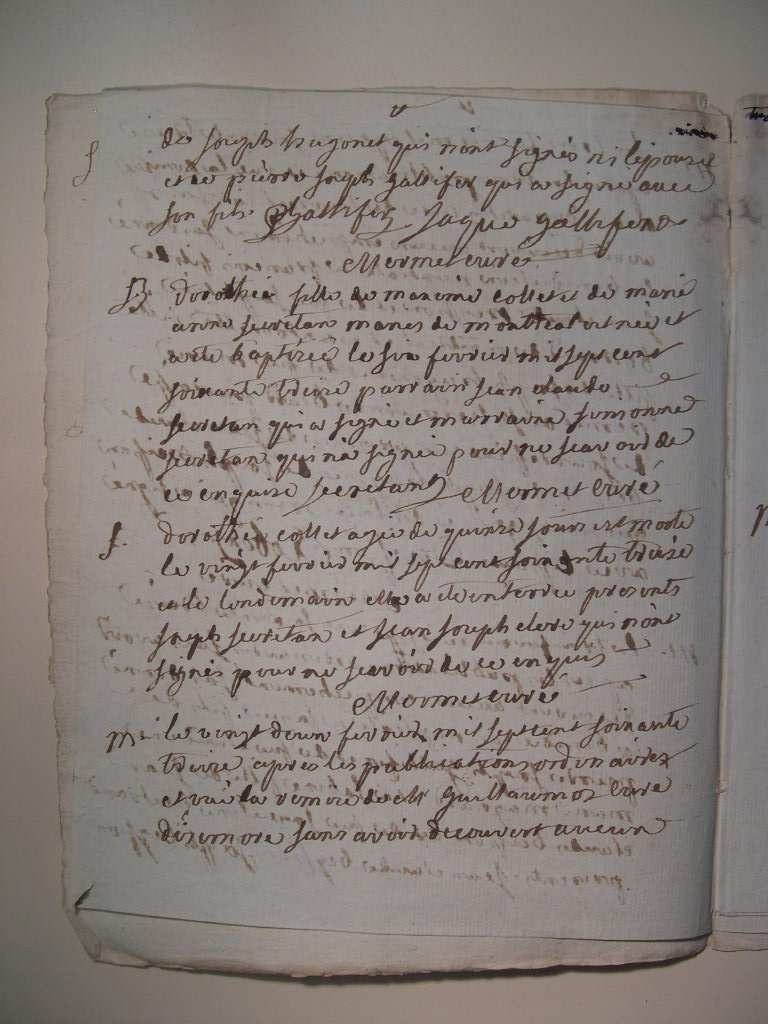 de joseph hugonet qui n'ont signés ni l'épouse
et de pierre joseph gallifet qui a signé avec
son fils PGallifet Jaque gallifet
Mermet curé
B. dorothée fille de maxime collet et de marie
anne secretan maries de montreal est née et
a ete baptizée le six fevrier mil sept cent
soixante treize parrain jean claude
secretan qui a signé et marraine simonne
secretan qui n'a signée pour ne scavoir de
ce enquise secretan Mermet Curé
f. dorothée collet agée de quinze jours est morte
le vingt fevrier mil sept cent soixante treize
et le lendemain elle a ete enterrée presents
joseph secretan et jean joseph clerc qui n'ont
signés pour ne scavoir de ce enquis
Mermet curé
M. le vingt deux fevrier mil sept cent soixante
treize apres les publications ordinaires
et vüe la remise de Mr Guillaumot curé
disimore sans avoir decouvert aucun